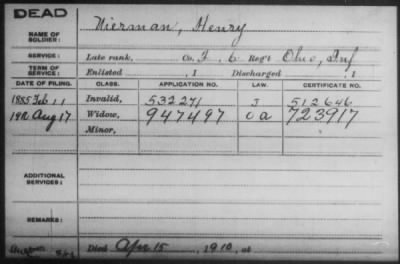 DEAD
NAME OF SOLDIER: Nierman, Henry
SERVICE: Late rank, Co. F, 6 Reg't Ohio, Inf
TERM OF SERVICE: Enlisted , 1 Discharged , 1
DATE OF FILING. CLASS. APPLICATION NO. LAW. CERTIFICATE NO.
1885 Feb 11 Invalid, 532271 J 512646
Aug 17 Widow, 947497 O a 723917
Minor,
ADDITIONAL SERVICES:
REMARKS:
Died Apr 15, 1910, at